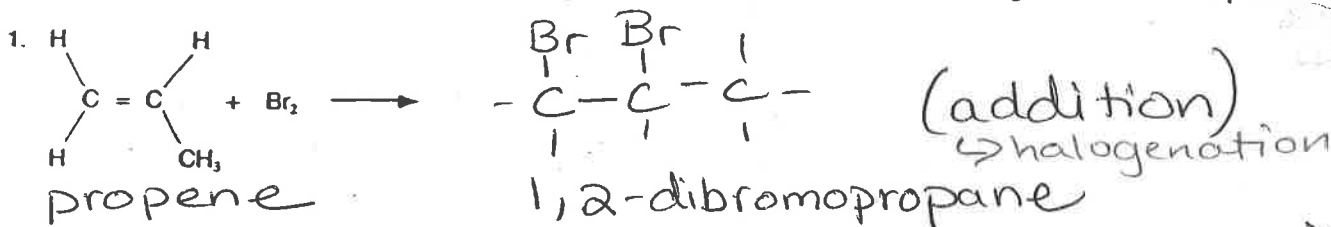 1. H H Br Br
C = C + Br₂ ⟶ - C - C - C -
H CH₃
(addition)
↳ halogenation
propene 1,2-dibromopropane